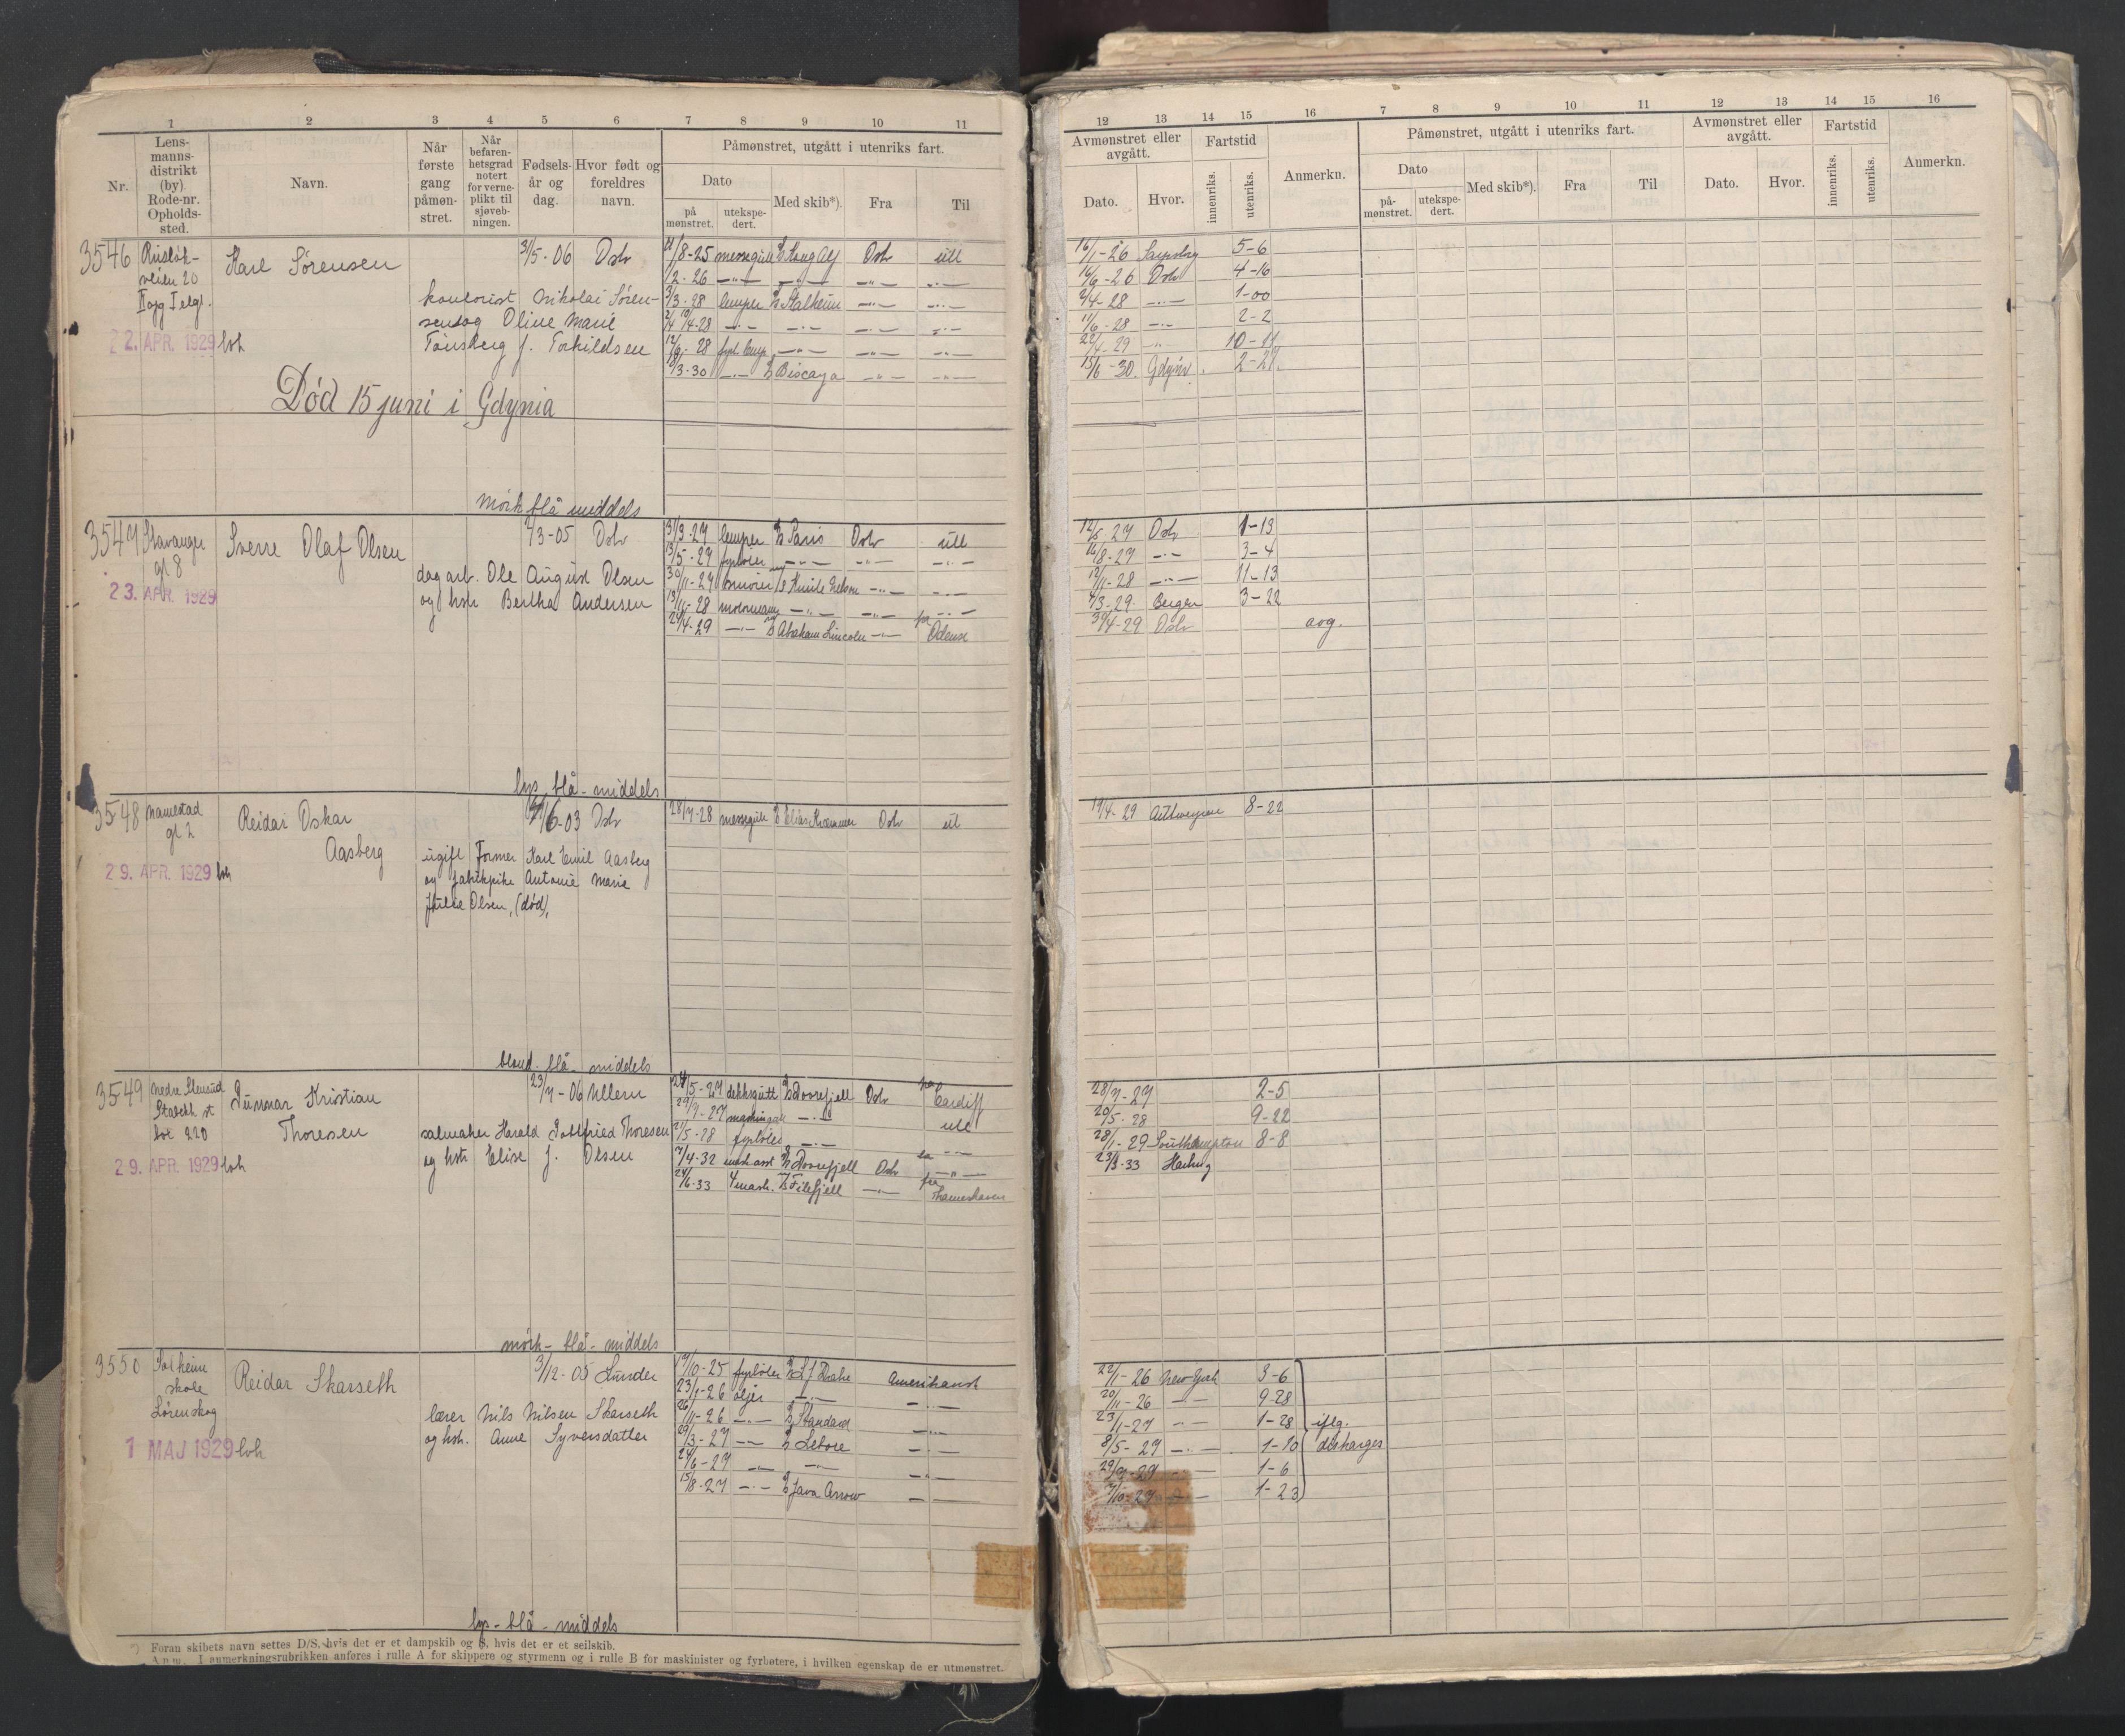 1 2 3 4 5 6 7 8 9 10 11
Nr.
Lens-
manns-
distrikt
(by)
Rode-nr.
Opholds-
sted.
Navn.
Når
første
gang
påmøn-
stret.
Når
befaren-
hetsgrad
notert
for verne-
plikt til
sjøveb-
ningen.
Fødsels-
år og
dag.
Hvor født og
foreldres
navn.
Påmønstret, utgått i utenriks fart.
Dato
på
mønstret.
utekspe-
dert.
Med skib*).
Fra
Til
3546 Karl Sørensen 3/5-06 Oslo
22. APR. 1929
kontorist Nikolai Søren-
sen og Oline Marie
Tønsberg f. Torkildsen
/8-25 messegutt Kong Alf Oslo utl
/2-26 —"— —"— —"— —"—
/3-28 lemper Stalheim —"— —"—
/4-28 —"— —"— —"— —"—
/6-28 fyrb. lemp. —"— —"— —"—
/3-30 —"— Biscaya —"— —"—
Død 15 juni i Gdynia
mørk blå middels
Stavanger
gt 8
Sverre Olaf Olsen /3-05 Oslo
23. APR. 1929
dagarb. Ole August Olsen
og hstr Bertha Andersen
3/3-27 lemper Paris Oslo utl
13/5-27 fyrbøter —"— —"— —"—
30/11-27 smører Knute Nelson —"— —"—
13/11-28 motormann —"— —"— —"—
24/4-29 —"— Abraham Lincoln —"— fra Odense
lys - blå - middels
3548 Namestad
gt 2
Reidar Oskar
Aasberg
/6-03 Oslo
29. APR. 1929
ugift Former Karl Emil Aasberg
og fabrikpike Antonie Marie
Julia Olsen, (død),
28/7-28 messegutt Elias Kræmmer Oslo utl
blond - blå - middels
3549 Gunnar Kristian
Thoresen
23/7-06 Ullern
29. APR. 1929
salmaker Harald Gottfried Thoresen
og hstr Elise f. Olsen
24/5-27 dekksgutt Dovrefjell Oslo Cardiff
/7-27 —"— utl
21/5-28 fyrbøter —"—
/4-32 Dovrefjell Oslo —"—
24/6-33 4 mask. Filefjell —"— fra
mørk - blå - middels
3550 Solheim
skole
Lørenskog
Reidar Skarseth 3/12-05 Lunder
1 MAJ 1929
lærer Nils Nilsen Skarseth
og hstr. Anne Syversdatter
/10-25 fyrbøter Amerikansk
23/1-26 oljer —"— —"—
26/11-26 —"— Standard —"—
29/3-27 —"— Lebore —"—
24/6-27 —"— —"— —"—
15/8-27 —"— Java Arrow —"—
lys - blå - middels
*) Foran skibets navn settes D/S. hvis det er et dampskib og S. hvis det er et seilskib.
Anm. I anmerkningsrubrikken anføres i rulle A for skippere og styrmenn og i rulle B for maskinister og fyrbøtere, i hvilken egenskap de er utmønstret.
12 13 14 15 16 7 8 9 10 11 12 13 14 15 16
Avmønstret eller
avgått.
Dato.
Hvor.
Fartstid
innenriks.
utenriks.
Anmerkn.
Påmønstret, utgått i utenriks fart.
Dato
på-
mønstret.
utekspe-
dert.
Med skib*).
Fra
Til
Avmønstret eller
avgått.
Dato.
Hvor.
Fartstid
innenriks.
utenriks.
Anmerkn.
16/1-26 Sarpsborg 5-6
16/6-26 Oslo 4-16
2/4-28 —"— 1-00
11/6-28 —"— 2-2
22/4-29 —"— 10-11
15/6-30. Gdynia 2-28.
12/5 27 Oslo 1-13
16/8-27 —"— 3-4
12/11-28 —"— 11-13
/3-29. Bergen 3-22
30/4-29 Oslo avg.
19/4-29 Antwerpen 8-22
28/7-27 2-5
20/5-28 9-22
28/1-29 Southampton 8-8
23/3-33 Hamburg
22/1-26 New York 3-6
20/11-26 —"— 9-28
23/1-27 —"— 1-28
8/5-27 —"— 1-10
1-6
/10-27 1-23
iflg.
discharges